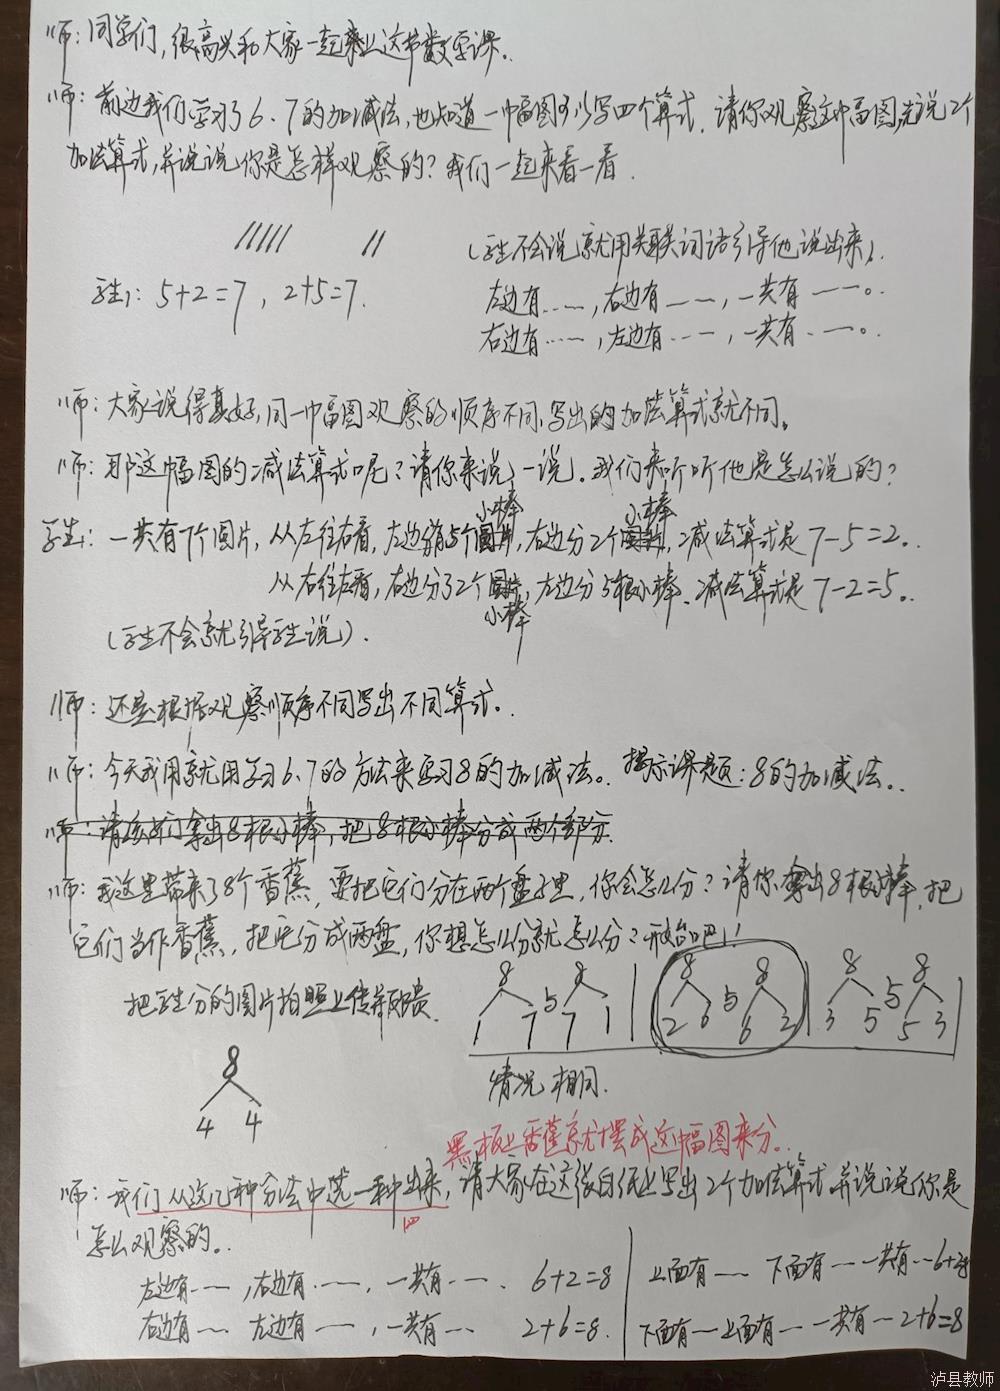 师：同学们，很高兴和大家一起来上这节数学课。
师：前边我们学习了6、7的加减法，也知道一幅图可以写四个算式．请你观察这幅图，先说2个
加法算式，并说说你是怎样观察的？我们一起来看一看．
///// //
（学生不会说就用关联词语引导他说出来）．
学生1：5+2=7，2+5=7．
左边有……，右边有……，一共有……。
右边有……，左边有……，一共有……。
师：大家说得真好，同一幅图观察的顺序不同，写出的加法算式就不同。
师：那这幅图的减法算式呢？请你来说一说．我们来听听他是怎么说的？
小棒 小棒
学生：一共有7个图片，从左往右看，左边有5个，右边分2个，减法算式是7-5=2。
从右往左看，右边分了2个，左边分5根小棒．减法算式是7-2=5。
小棒
（学生不会就引导学生说）．
师：还是根据观察顺序不同写出不同算式。
师：今天我用就用学习6、7的方法来学习8的加减法。揭示课题：8的加减法。
师：请孩子们拿出8根小棒，把8根小棒分成两个部分．
师：我这里带来了8个香蕉，要把它们分在两个盘子里，你会怎么分？请你拿出8根小棒，把
它们当作香蕉，把它分成两盘，你想怎么分就怎么分？开始吧！
8 8 8 8 8 8
把学生分的图片拍照上传并反馈．
与 与 与
1 7 7 1 2 6 6 2 3 5 5 3
情况相同．
8
4 4
黑板上香蕉就摆成这幅图来分。
师：我们从这几种分法中选一种出来，请大家在这张白纸上写出2个加法算式并说说你是
怎么观察的。
左边有……，右边有……，一共有……．6+2=8
上面有…… 下面有……一共有……6+2=8
右边有…… 左边有……，一共有…… 2+6=8．
下面有……上面有……一共有……2+6=8
泸县教师